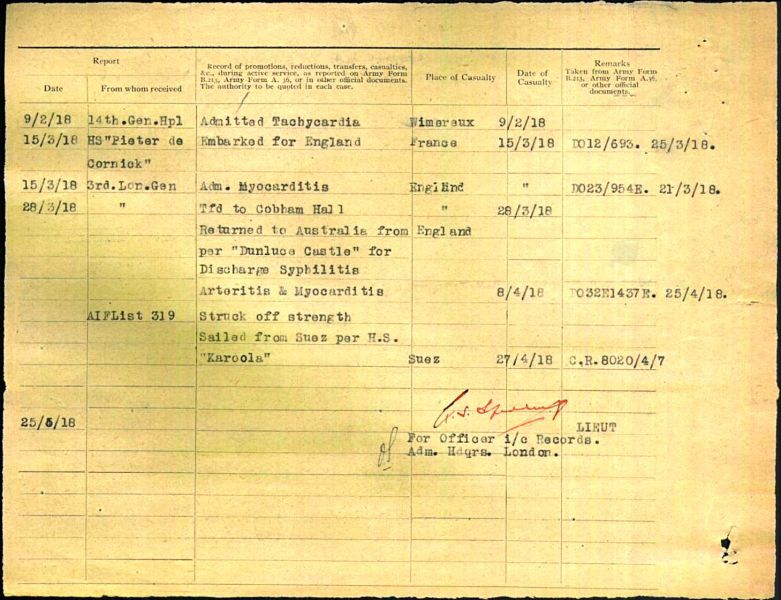 Report
Date
From whom received
Record of promotions, reductions, transfers, casualties,
&c., during active service, as reported on Army Form
B.213, Army Form A. 36, or in other official documents.
The authority to be quoted in each case.
Place of Casualty
Date of
Casualty
Remarks
Taken from Army Form
B.213, Army Form A.36,
or other official
documents.
9/2/18 14th.Gen.Hpl Admitted Tachycardia Wimereux 9/2/18
15/3/18 HS"Pieter de Embarked for England France 15/3/18 DO12/693. 25/3/18.
Cornick"
15/3/18 3rd.Lon.Gen Adm. Myocarditis England " DO23/954E. 21/3/18.
28/3/18 " Tfd to Cobham Hall " 28/3/18
Returned to Australia from England
per "Dunluce Castle" for
Discharge Syphilitis
Arteritis & Myocarditis 8/4/18 DO32E1437E. 25/4/18.
AIFList 319 Struck off strength
Sailed from Suez per H.S.
"Karoola" Suez 27/4/18 C.R.8020/4/7
25/5/18 LIEUT
For Officer i/c Records.
Adm. Hdqrs. London.